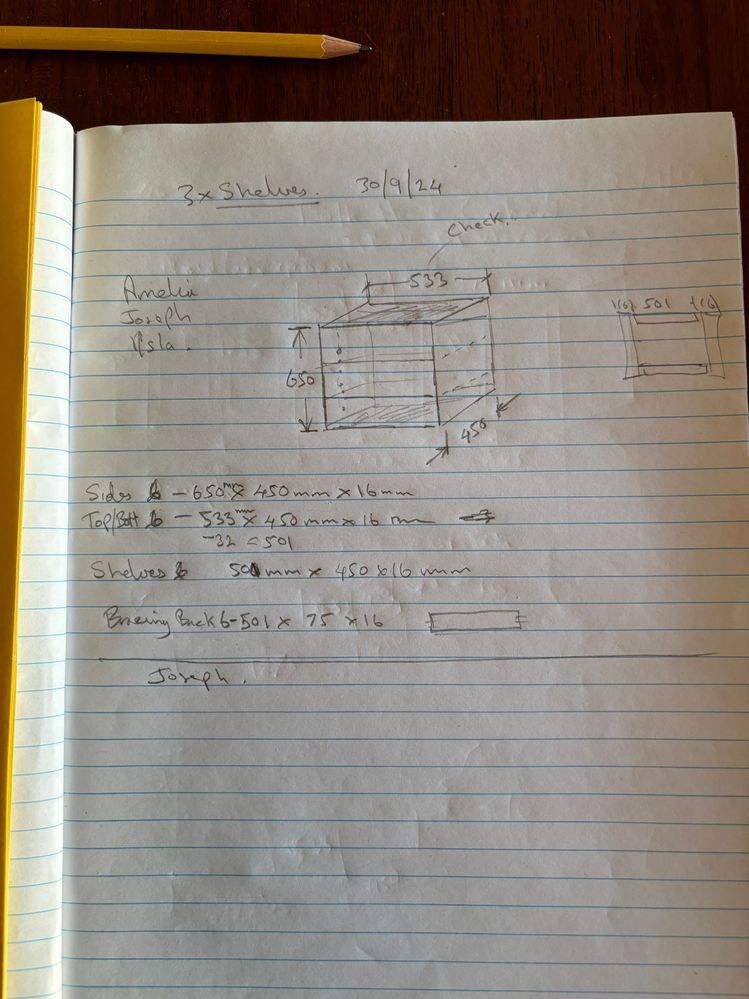 3x Shelves. 30/9/24
check.
533
Amelia
Joseph
Isla.
650
450
16 501 16
Sides 6 - 650mm x 450mm x 16mm
Top/Bott 6 - 533mm x 450mm x 16mm
-32 = 501
Shelves 501mm x 450 x 16mm
Bracing Back 6 - 501 x 75 x 16
Joseph.